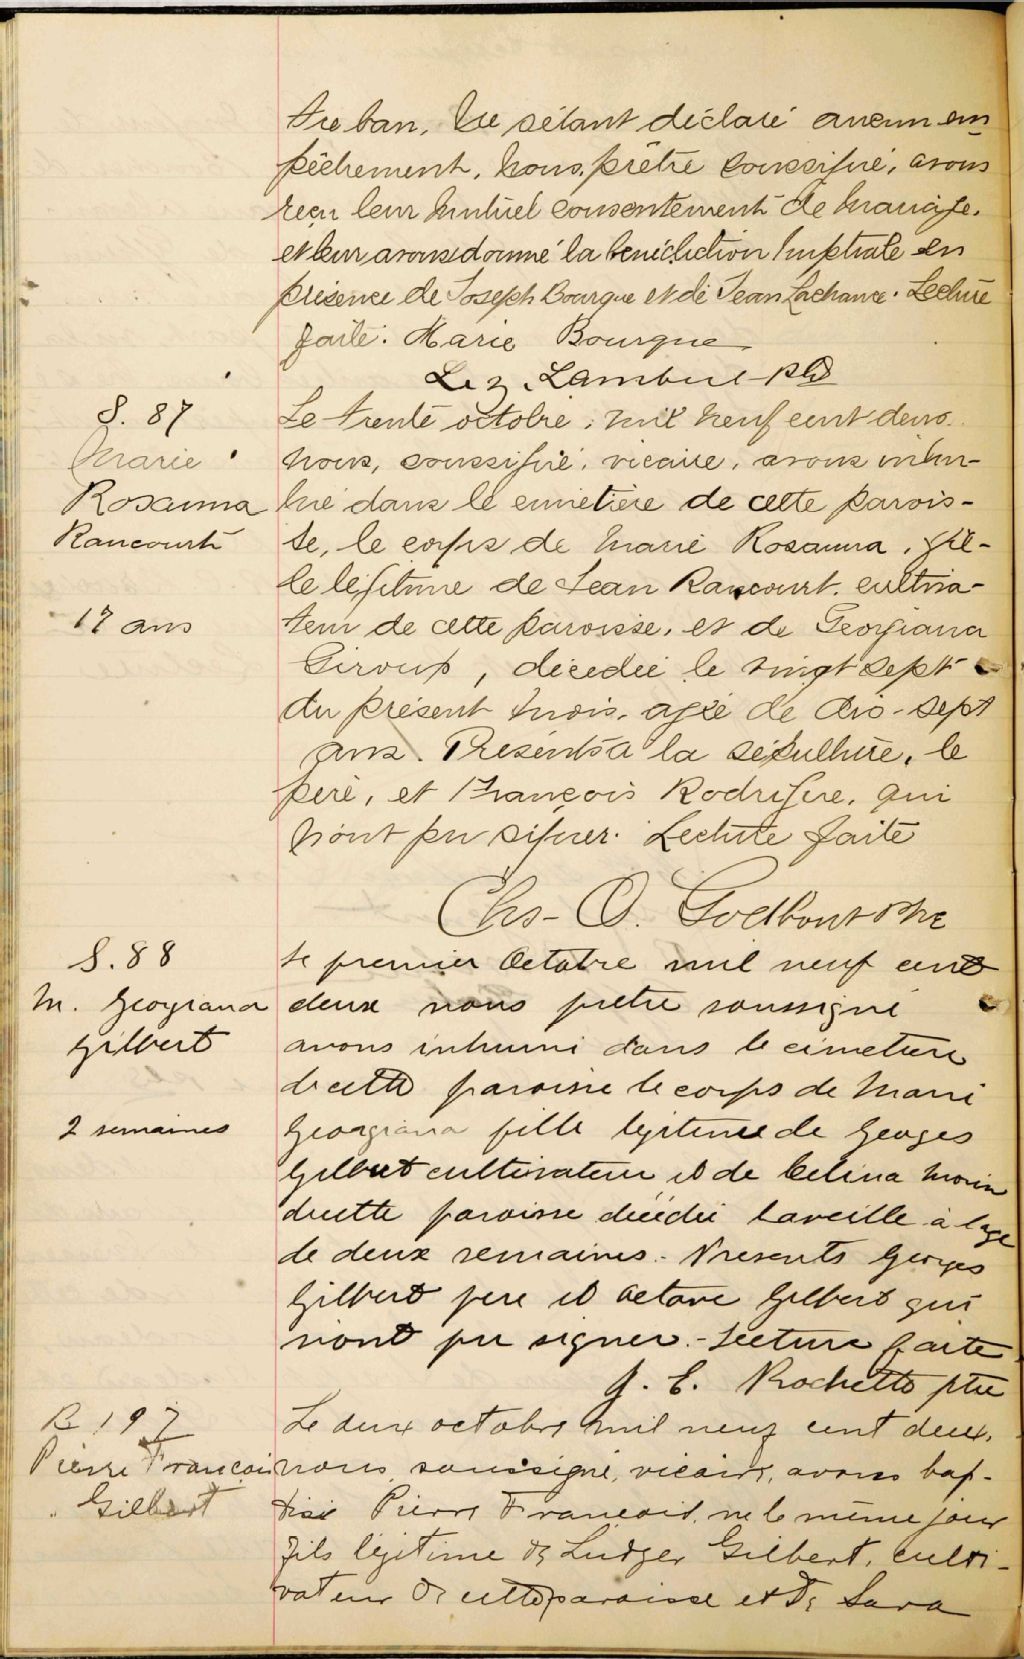 tre ban. Ne s'étant déclaré aucun em
pêchement, nous, prêtre soussigné, avons
reçu leur mutuel consentement de mariage.
et leur avons donné la bénédiction nuptiale en
présence de Joseph Bourque et de Jean Lachance. Lecture
faite. Marie Bourque
Lambert ptre
S. 87
Marie
Rosanna
Rancourt
17 ans
Le trente octobre, mil neuf cent deux.
nous, soussigné, vicaire, avons inhu-
mé dans le cimetière de cette parois-
se, le corps de Marie Rosanna, fil-
le légitime de Jean Rancourt, cultiva-
teur de cette paroisse, et de Georgiana
Giroux, décédée le vingt sept
du présent mois, agée de dix-sept
ans. Présents à la sépulture, le
père, et François Rodrigue, qui
n'ont pu signer. Lecture faite
Chs-O. Godbout Ptre
S. 88
M. Georgiana
Gilbert
2 semaines
Le premier Octobre mil neuf cent
deux nous prêtre soussigné
avons inhumé dans le cimetière
de cette paroisse le corps de Marie
Georgiana fille légitime de Georges
Gilbert cultivateur et de Celina Morin
de cette paroisse décédée la veille à l'age
de deux semaines. Présents Georges
Gilbert père et Octave Gilbert qui
n'ont pu signer. - Lecture faite
J. E. Rochette ptre
B 197
Pierre François
Gilbert
Le deux octobre mil neuf cent deux,
nous, soussigné, vicaire, avons bap-
tisé Pierre François, né le même jour
fils légitime de Ludger Gilbert, culti-
vateur de cette paroisse et de Sara